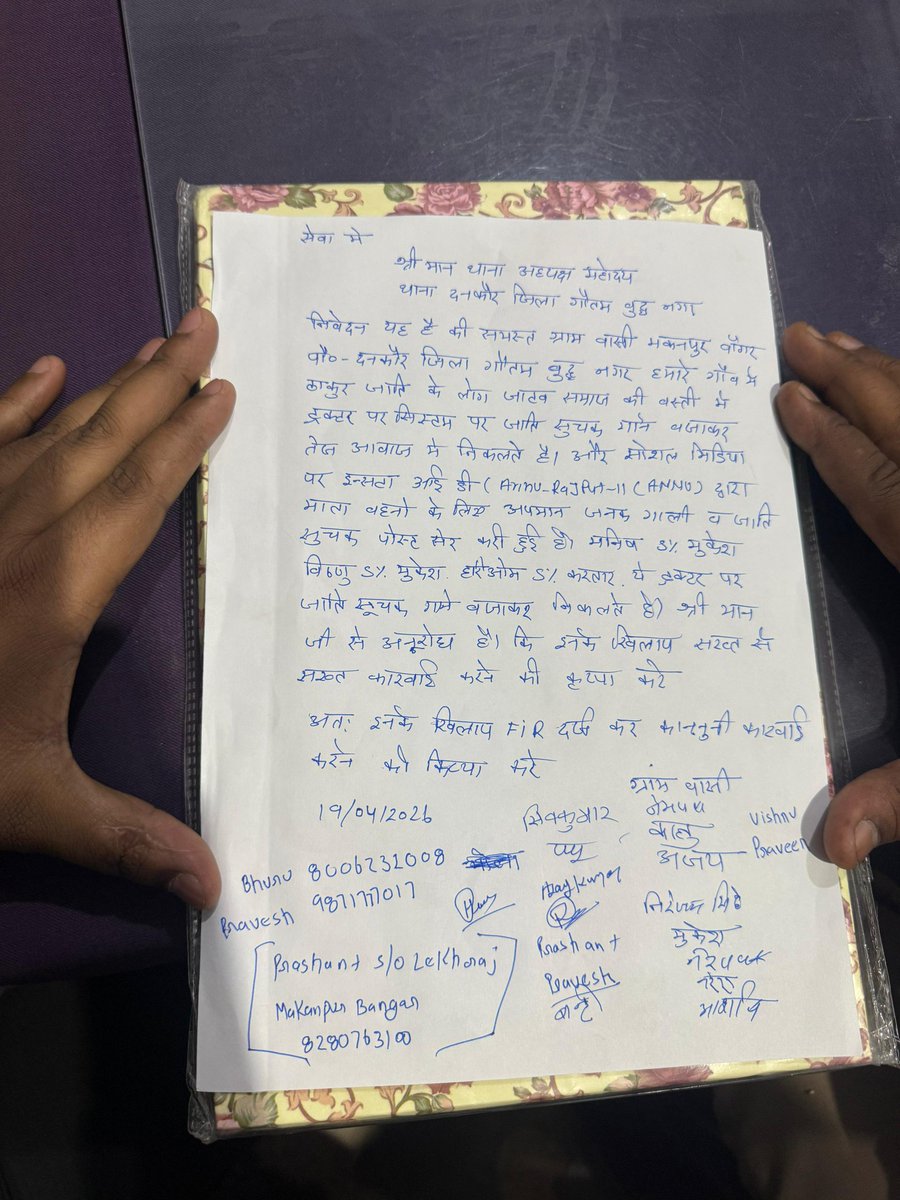 सेवा मे
श्री मान थाना अध्यक्ष महोदय
थाना दनकौर जिला गौतम बुद्ध नगर
निवेदन यह है की समस्त ग्राम वासी मकनपुर बाँगर
पो०- दनकौर जिला गौतम बुद्ध नगर हमारे गाँव मे
ठाकुर जाति के लोग जाटव समाज की वस्ती मे
ट्रक्टर पर सिस्टम पर जाति सुचक गाने बजाकर
तेज आवाज मे निकलते है। और सोशल मिडिया
पर इन्सटा आई डी (Annu-Rajput-11 (ANNU) द्वारा
माता वहनो के लिए अपमान जनक गाली व जाति
सुचक पोस्ट सेर करी हुई है। मनिष S/o मुकेश
विष्णु S/o मुकेश. हरिओम S/o करतार. ये ट्रक्टर पर
जाति सूचक गाने बजाकर निकलते है) श्री मान
जी से अनुरोध है। कि इनके खिलाप सख्त से
सख्त कारवाई करने की कृप्पा करे
अत: इनके खिलाप FIR दर्ज कर कानुनी कारवाई
करने की क्रिप्या करे
ग्राम वासी
19/04/2026 सिवकुमार
पप्पू कालु vishnu
अजय Praveen
Bhunu 8006232008
Pravesh 9871777017
Ajay kumar
Prashant S/O Lekhraj
Makanpur Bangar
8280763100
Prashant
Pravesh
मुकेश